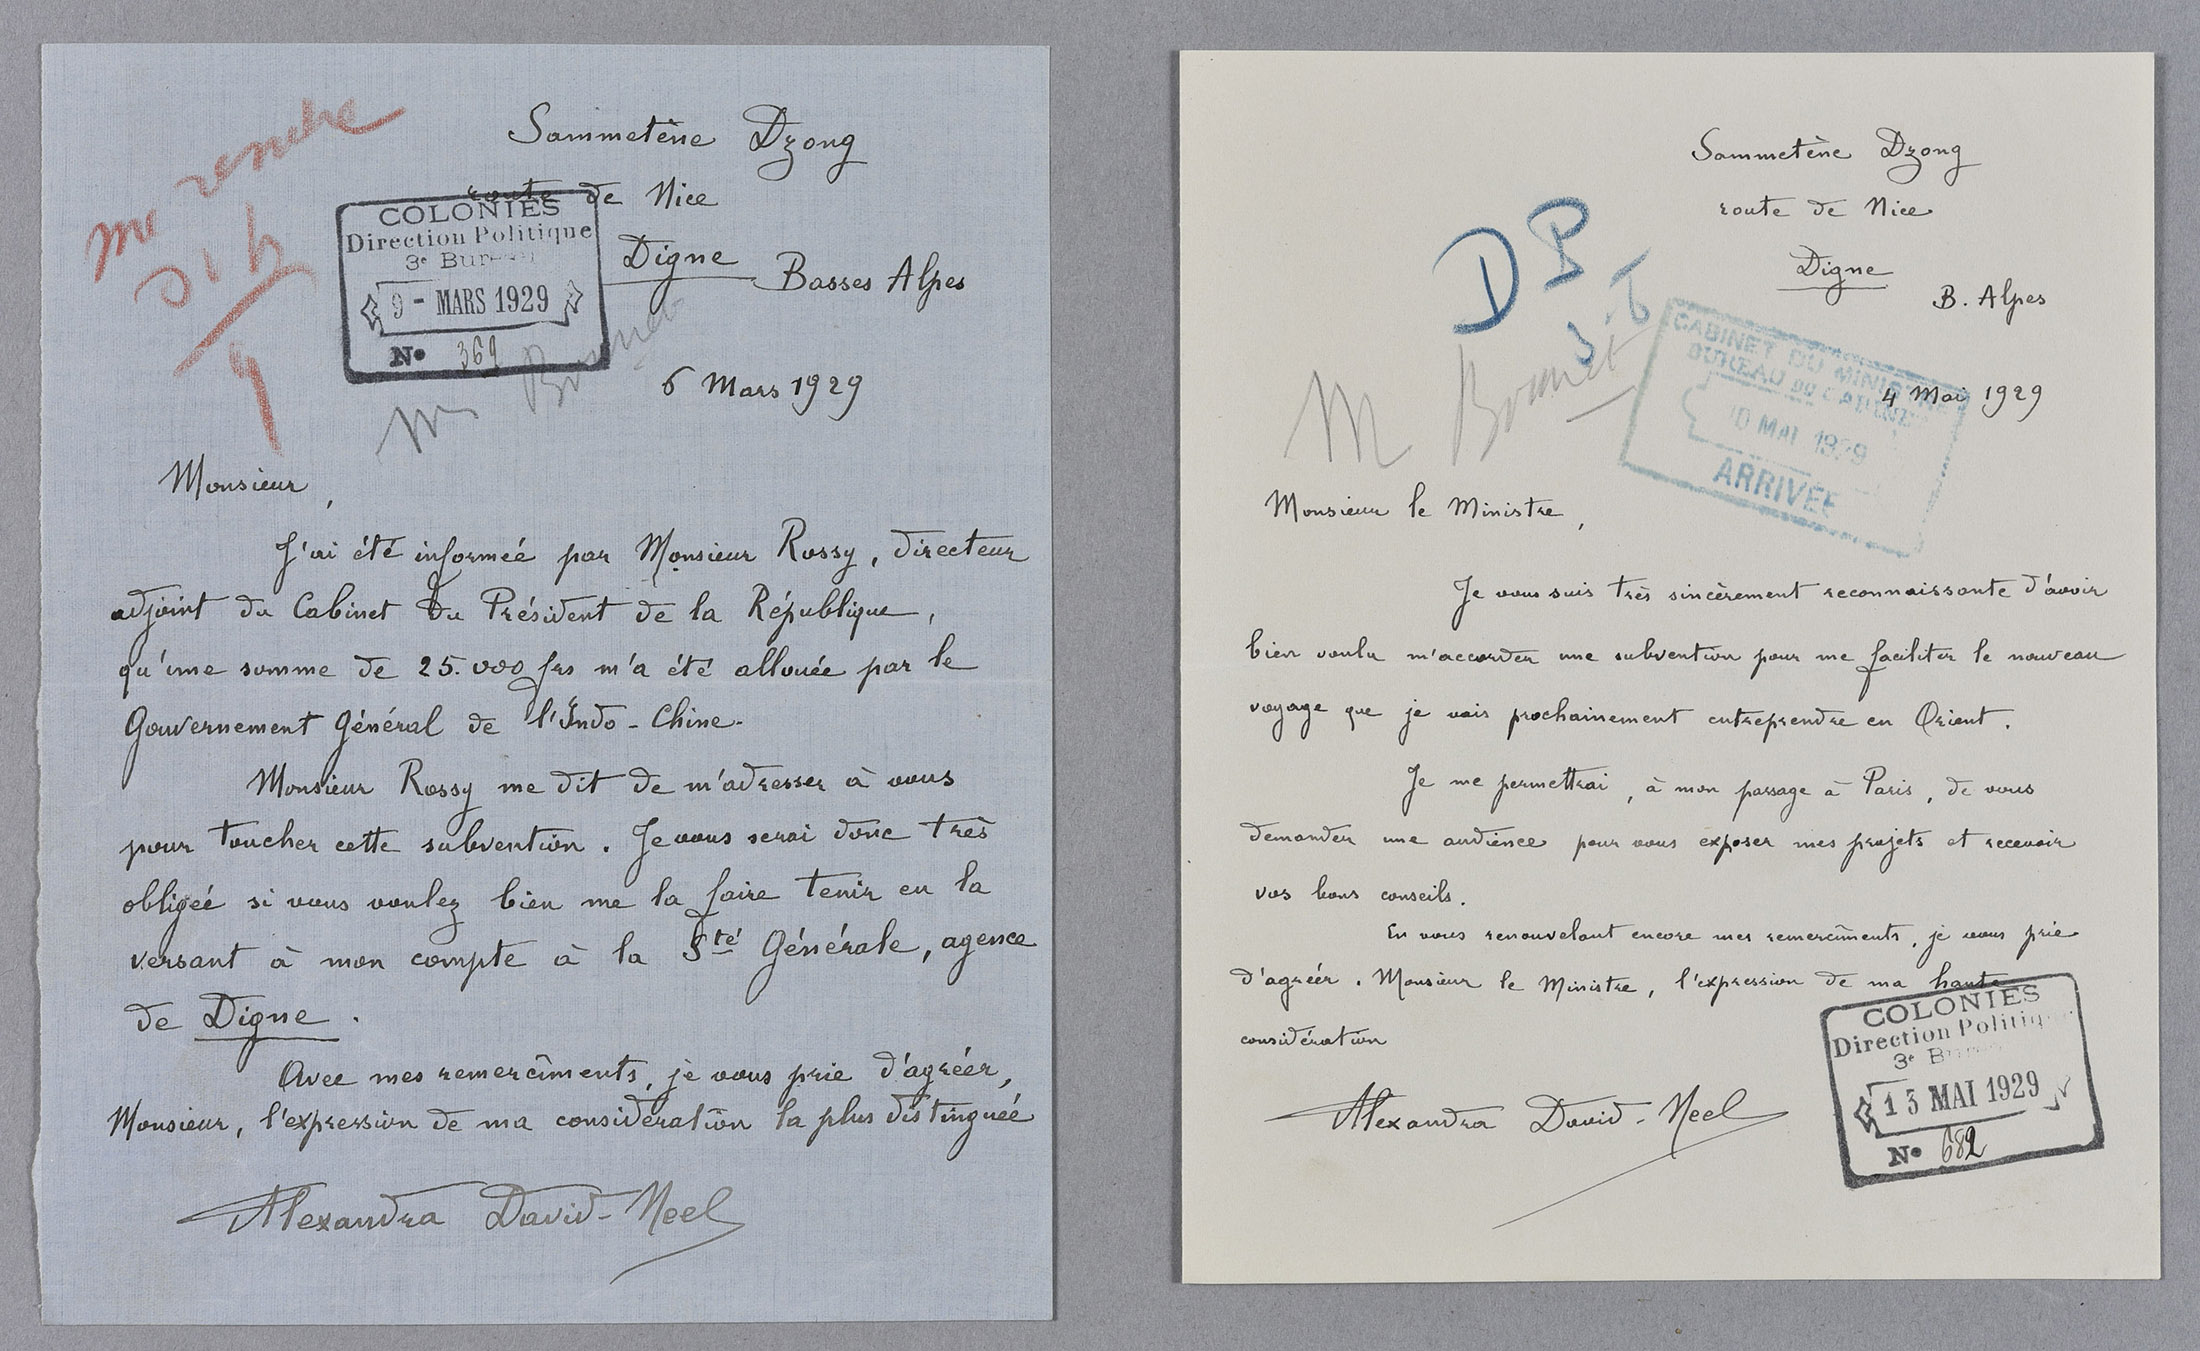 me rendre
Sammetène Dzong
route de Nice
COLONIES
Direction Politique
3e Bureau
9 - MARS 1929
No 369
Digne
Basses Alpes
M Bonnet
6 Mars 1929
Monsieur,
J'ai été informée par Monsieur Rossy, directeur
adjoint du Cabinet du Président de la République,
qu'une somme de 25.000 frs m'a été allouée par le
Gouvernement Général de l'Indo-Chine.
Monsieur Rossy me dit de m'adresser à vous
pour toucher cette subvention. Je vous serai donc très
obligée si vous voulez bien me la faire tenir en la
versant à mon compte à la Sté Générale, agence
de Digne.
Avec mes remercîments, je vous prie d'agréer,
Monsieur, l'expression de ma considération la plus distinguée
Alexandra David-Neel
Sammetène Dzong
route de Nice
Digne
B. Alpes
DP
3
M Bonnet
CABINET DU MINISTRE
BUREAU DU CABINET
10 MAI 1929
ARRIVÉE
4 Mai 1929
Monsieur le Ministre,
Je vous suis très sincèrement reconnaissante d'avoir
bien voulu m'accorder une subvention pour me faciliter le nouveau
voyage que je vais prochainement entreprendre en Orient.
Je me permettrai, à mon passage à Paris, de vous
demander une audience pour vous exposer mes projets et recevoir
vos bons conseils.
En vous renouvelant encore mes remercîments, je vous prie
d'agréer, Monsieur le Ministre, l'expression de ma haute
considération
Alexandra David-Neel
COLONIES
Direction Politique
3e Bureau
13 MAI 1929
No 682